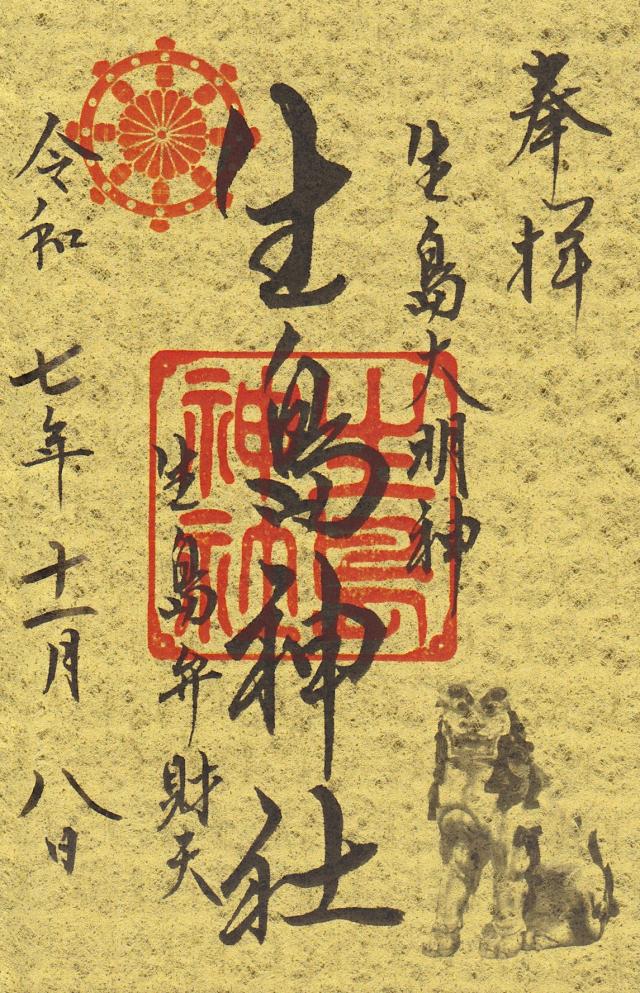 奉拝
生島大明神
生島神社
生島神社
生島弁財天
令和七年十一月八日